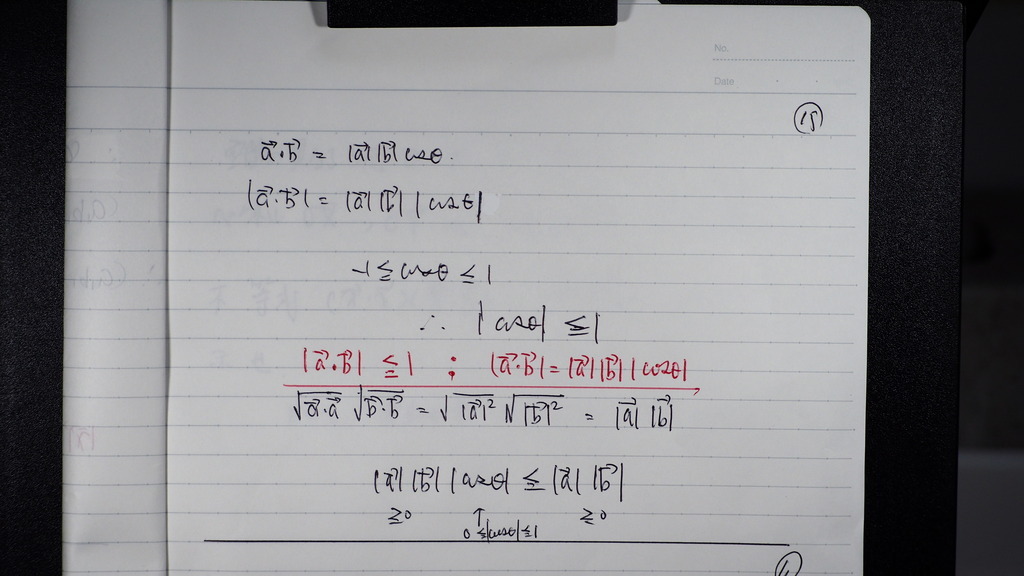 No.
Date
15
a⃗·b⃗ = |a⃗||b⃗|cosθ.
|a⃗·b⃗| = |a⃗||b⃗||cosθ|
-1 ≦ cosθ ≦ 1
∴ |cosθ| ≦ 1
|a⃗·b⃗| ≦ 1 : |a⃗·b⃗| = |a⃗||b⃗||cosθ|
√a⃗·a⃗ √b⃗·b⃗ = √|a⃗|² √|b⃗|² = |a⃗||b⃗|
|a⃗||b⃗||cosθ| ≦ |a⃗||b⃗|
≧0 ↑ ≧0
0≦|cosθ|≦1